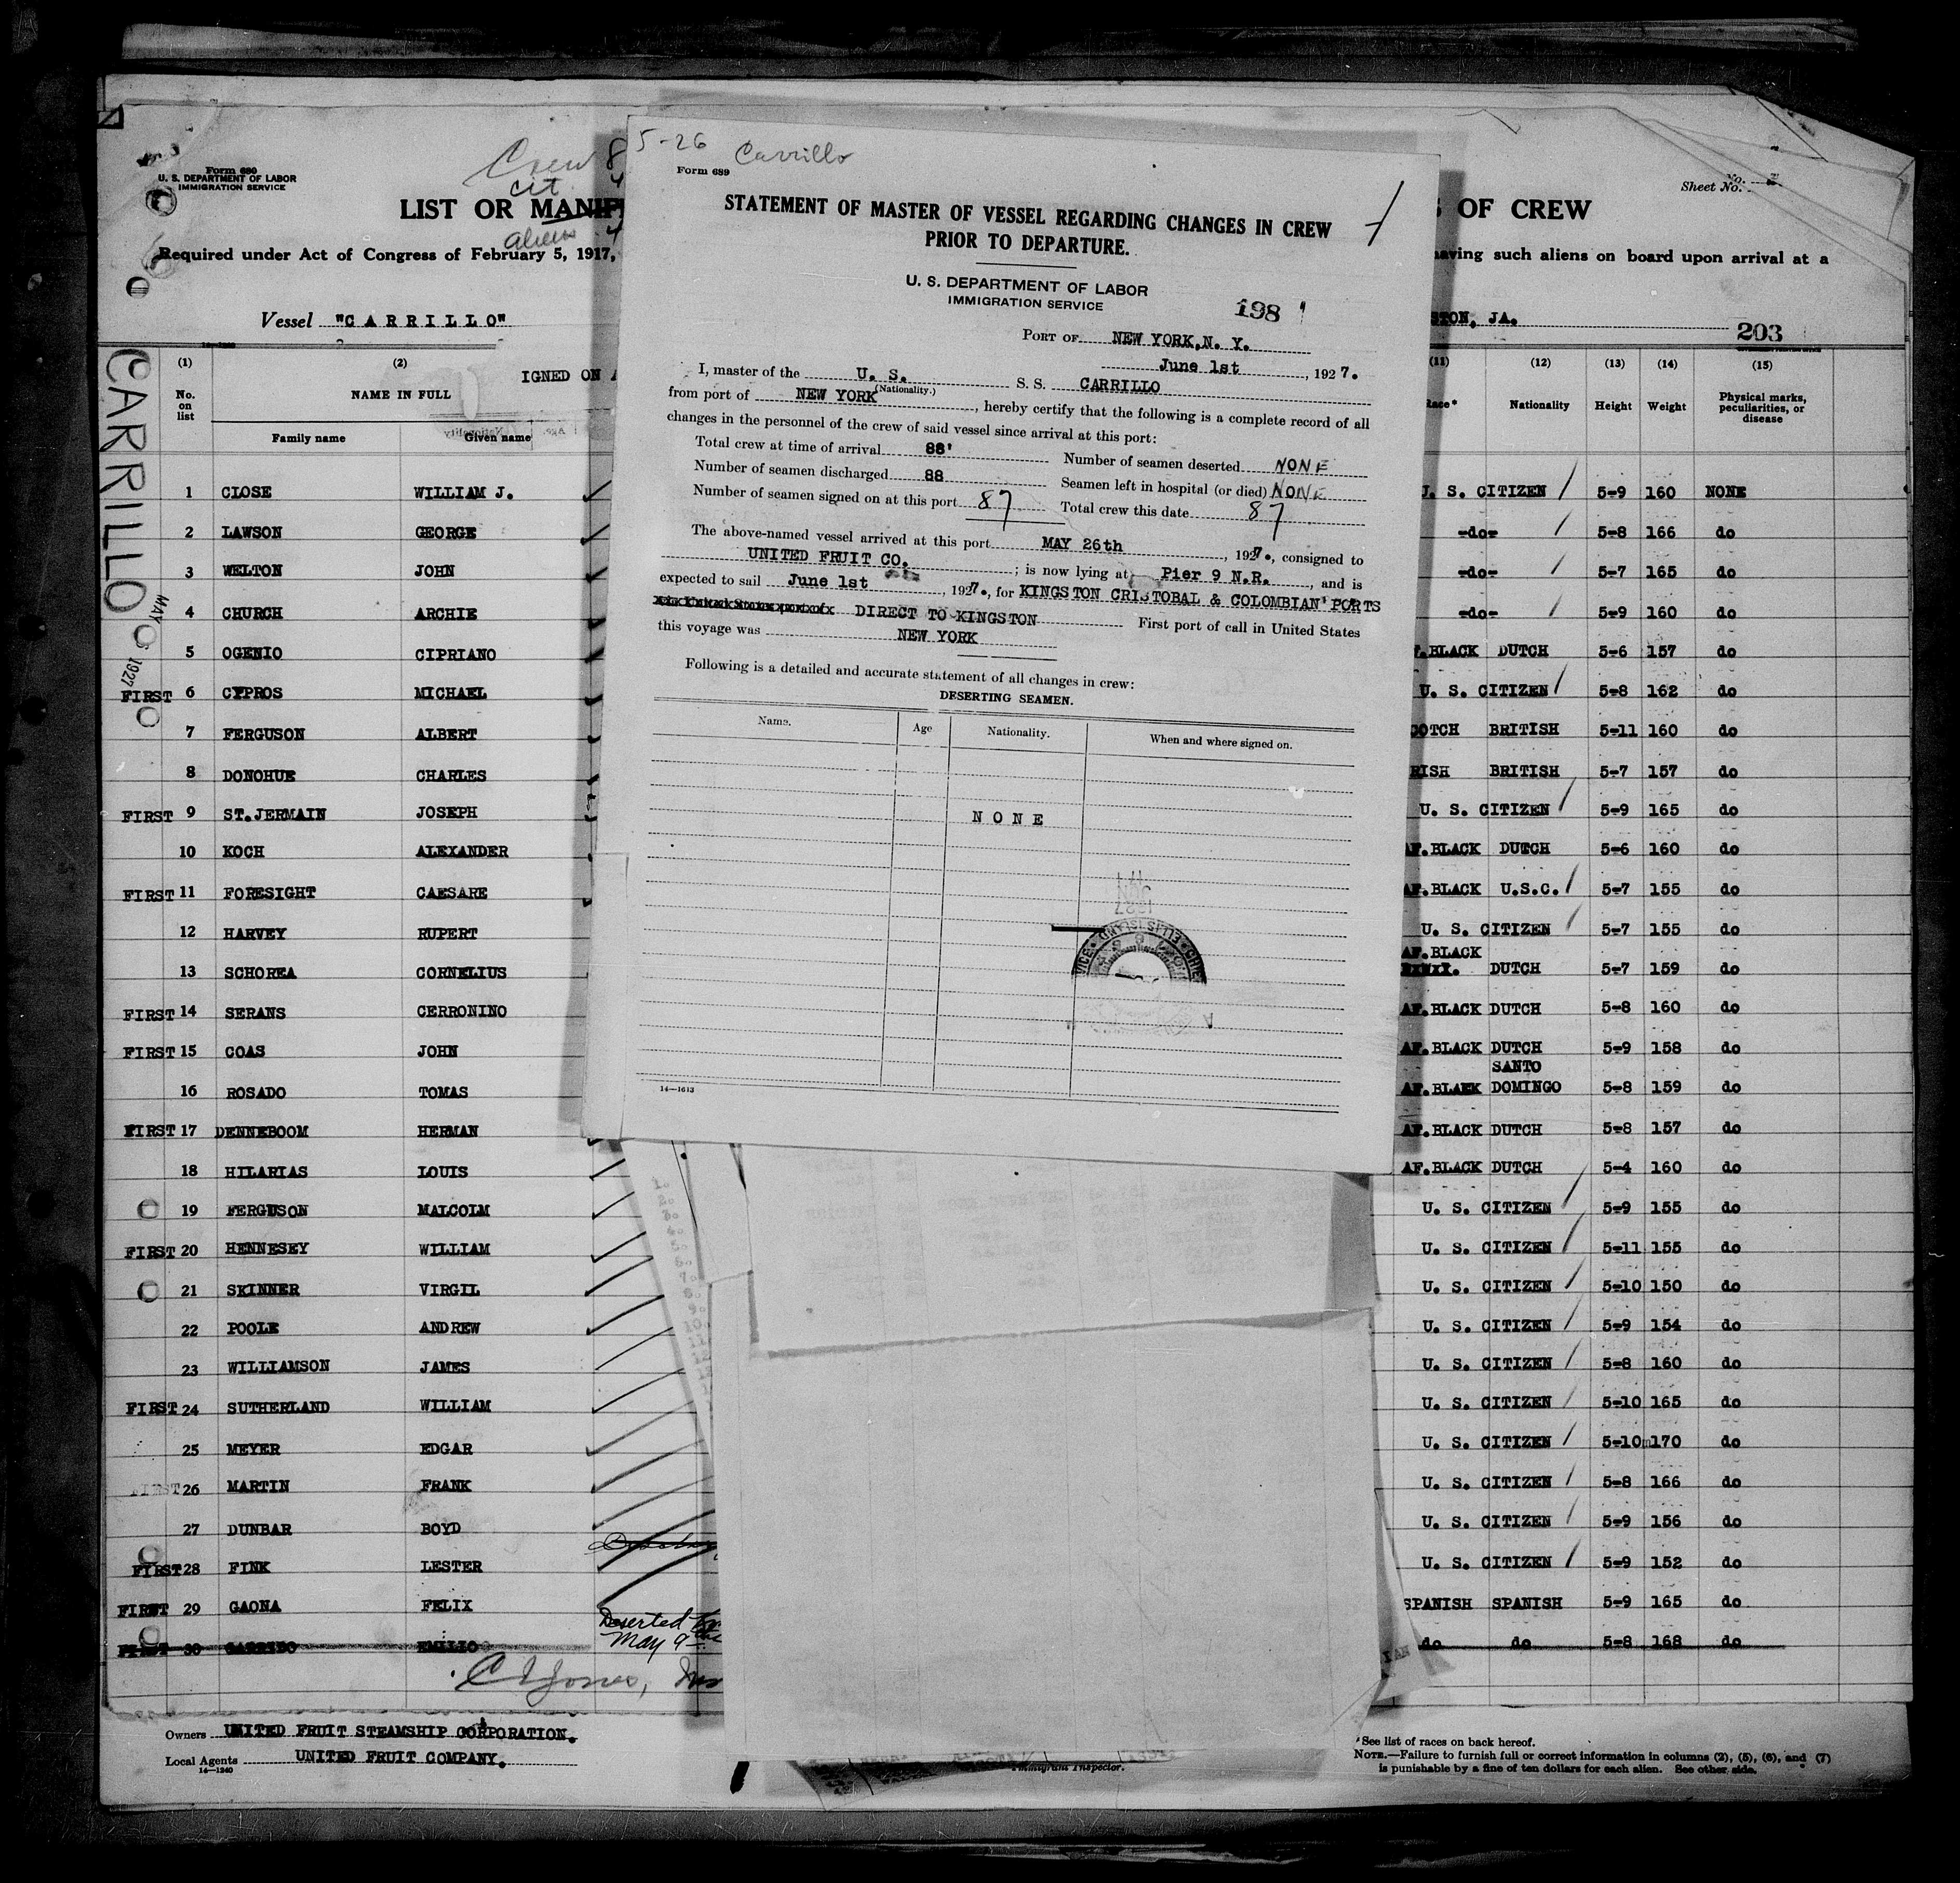 5-26 Carrillo
Form 689
STATEMENT OF MASTER OF VESSEL REGARDING CHANGES IN CREW
PRIOR TO DEPARTURE.
U. S. DEPARTMENT OF LABOR
IMMIGRATION SERVICE
198
PORT OF NEW YORK, N. Y.
June 1st, 1927.
I, master of the U. S. S. S. CARRILLO
(Nationality.)
from port of NEW YORK, hereby certify that the following is a complete record of all
changes in the personnel of the crew of said vessel since arrival at this port:
Total crew at time of arrival 88' Number of seamen deserted NONE
Number of seamen discharged 88 Seamen left in hospital (or died) NONE
Number of seamen signed on at this port 87 Total crew this date 87
The above-named vessel arrived at this port MAY 26th, 1927., consigned to
UNITED FRUIT CO.; is now lying at Pier 9 N.R., and is
expected to sail June 1st, 1927., for KINGSTON CRISTOBAL & COLOMBIAN PORTS
DIRECT TO KINGSTON First port of call in United States
this voyage was NEW YORK
Following is a detailed and accurate statement of all changes in crew:
DESERTING SEAMEN.
Name. Age Nationality. When and where signed on.
N O N E
14—1613
Form 680
U. S. DEPARTMENT OF LABOR
IMMIGRATION SERVICE
Crew 8
cit 4
LIST OR MANIF
aliens 4
OF CREW
Sheet No.
Required under Act of Congress of February 5, 1917,
having such aliens on board upon arrival at a
Vessel "CARRILLO"
STON, JA.
203
CARRILLO
MAY 1927
(1) (2) (11) (12) (13) (14) (15)
No. on list NAME IN FULL IGNED ON Race* Nationality Height Weight Physical marks, peculiarities, or disease
Family name Given name
1 CLOSE WILLIAM J. U. S. CITIZEN 5-9 160 NONE
2 LAWSON GEORGE -do- 5-8 166 do
3 WELTON JOHN -do- 5-7 165 do
4 CHURCH ARCHIE -do- 5-9 160 do
5 OGENIO CIPRIANO F.BLACK DUTCH 5-6 157 do
FIRST 6 CYPROS MICHAEL U. S. CITIZEN 5-8 162 do
7 FERGUSON ALBERT COTCH BRITISH 5-11 160 do
8 DONOHUE CHARLES RISH BRITISH 5-7 157 do
FIRST 9 ST.JERMAIN JOSEPH U. S. CITIZEN 5-9 165 do
10 KOCH ALEXANDER AF.BLACK DUTCH 5-6 160 do
FIRST 11 FORESIGHT CAESARE AF.BLACK U.S.C. 5-7 155 do
12 HARVEY RUPERT U. S. CITIZEN 5-7 155 do
AF.BLACK
13 SCHOREA CORNELIUS DUTCH 5-7 159 do
FIRST 14 SERANS CERRONINO AF.BLACK DUTCH 5-8 160 do
FIRST 15 COAS JOHN AF.BLACK DUTCH 5-9 158 do
SANTO
16 ROSADO TOMAS AF.BLAEK DOMINGO 5-8 159 do
FIRST 17 DENNEBOOM HERMAN AF.BLACK DUTCH 5-8 157 do
18 HILARIAS LOUIS AF.BLACK DUTCH 5-4 160 do
19 FERGUSON MALCOLM U. S. CITIZEN 5-9 155 do
FIRST 20 HENNESEY WILLIAM U. S. CITIZEN 5-11 155 do
21 SKINNER VIRGIL U. S. CITIZEN 5-10 150 do
22 POOLE ANDREW U. S. CITIZEN 5-9 154 do
23 WILLIAMSON JAMES U. S. CITIZEN 5-8 160 do
FIRST 24 SUTHERLAND WILLIAM U. S. CITIZEN 5-10 165 do
25 MEYER EDGAR U. S. CITIZEN 5-10 170 do
FIRST 26 MARTIN FRANK U. S. CITIZEN 5-8 166 do
27 DUNBAR BOYD U. S. CITIZEN 5-9 156 do
FIRST 28 FINK LESTER U. S. CITIZEN 5-9 152 do
FIRST 29 GAONA FELIX SPANISH SPANISH 5-9 165 do
Deserted
May 9
FIRST 30 GARRIDO EMILIO do do 5-8 168 do
C I Jones,
Owners UNITED FRUIT STEAMSHIP CORPORATION.
Local Agents UNITED FRUIT COMPANY.
14—1240
Immigrant Inspector.
*See list of races on back hereof.
NOTE.—Failure to furnish full or correct information in columns (2), (5), (6), and (7)
is punishable by a fine of ten dollars for each alien. See other side.